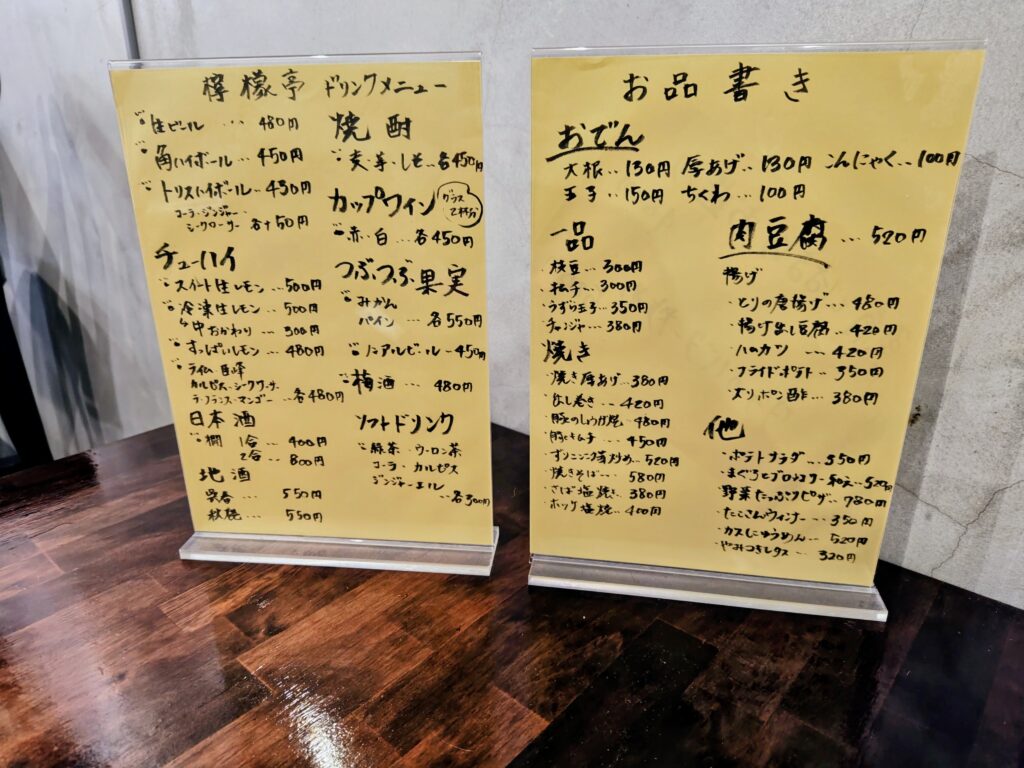 檸檬亭 ドリンクメニュー
生ビール … 480円
角ハイボール … 450円
トリスハイボール … 430円
コーラ・ジンジャー
シークワーサー 各+50円
チューハイ
スイート生レモン … 500円
冷凍生レモン … 500円
中おかわり … 300円
すっぱいレモン … 480円
ライム 巨峰
カルピス・シークワーサー
ラ・フランス・マンゴー … 各480円
日本酒
燗 1合 … 400円
2合 … 800円
地酒
呉春 … 550円
秋鹿 … 550円
焼酎
麦・芋・しそ … 各450円
カップワイン グラス2杯分
赤・白 … 各450円
つぶつぶ果実
みかん
パイン … 各550円
ノンアルビール … 450円
梅酒 … 480円
ソフトドリンク
緑茶・ウーロン茶
コーラ・カルピス
ジンジャーエール
… 各300円
お品書き
おでん
大根 … 130円 厚あげ … 130円 こんにゃく … 100円
玉子 … 150円 ちくわ … 100円
一品
・枝豆 … 300円
・キムチ … 300円
・うずら玉子 … 350円
・チャンジャ … 380円
焼き
・焼き厚あげ … 380円
・だし巻き … 420円
・豚のしょうが焼 … 480円
・豚キムチ … 450円
・ズリニンニク芽炒め … 520円
・焼きそば … 580円
・さば塩焼き … 380円
・ホッケ塩焼 … 400円
肉豆腐 … 520円
揚げ
・とりの唐揚げ … 480円
・揚げ出し豆腐 … 420円
・ハムカツ … 420円
・フライドポテト … 350円
・ズリポン酢 … 380円
他
・ポテトサラダ … 350円
・まぐろとブロッコリー和え … 520円
・野菜たっぷりピザ … 780円
・たこさんウィンナー … 350円
・カスにゅうめん … 520円
・やみつきレタス … 320円